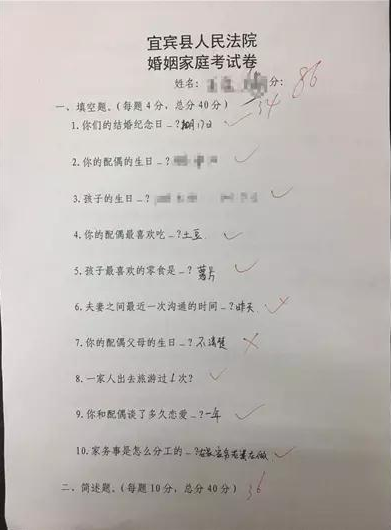 宜宾县人民法院
婚姻家庭考试卷
姓名: 分: 86
一、填空题。(每题4分,总分40分) 34
1.你们的结婚纪念日_?
2.你的配偶的生日_?
3.孩子的生日_?
4.你的配偶最喜欢吃_?土豆
5.孩子最喜欢的零食是_?薯片
6.夫妻之间最近一次沟通的时间_?昨天
7.你的配偶父母的生日_?不清楚
8.一家人出去旅游过1次?
9.你和配偶谈了多久恋爱_?一年
10.家务事是怎么分工的_?
二、简述题。(每题10分,总分40分) 36